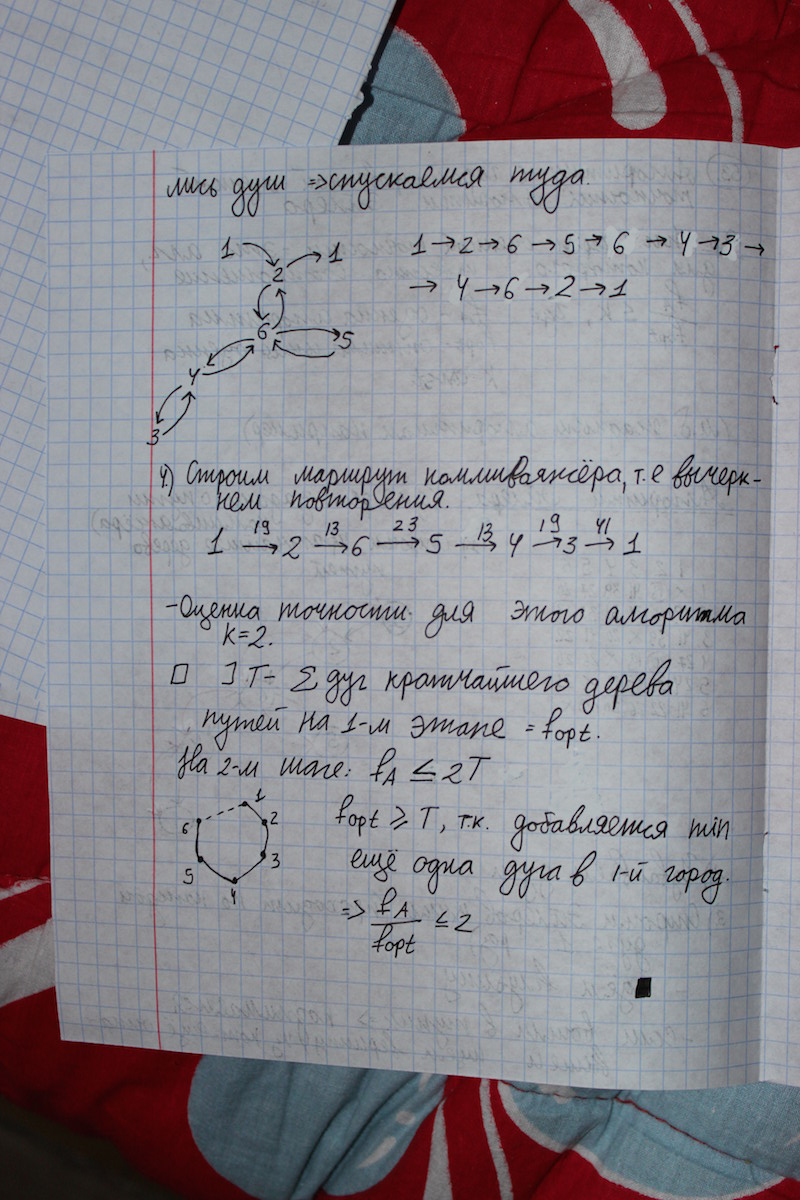 лись дуги => спускаемся туда.
1 2 1
6 5
4
3
1 → 2 → 6 → 5 → 6 → 4 → 3 →
→ 4 → 6 → 2 → 1
4) Строим маршрут коммивояжёра, т.е вычерк-
нем повторения.
19 13 23 13 19 41
1 → 2 → 6 → 5 → 4 → 3 → 1
-Оценка точности для этого алгоритма
K=2.
□ ] T- Σ дуг кратчайшего дерева
путей на 1-м этапе = fopt.
На 2-м шаге: fA ≤ 2T
1
2
3
4
5
6
fopt ≥ T, т.к. добавляется min
ещё одна дуга в 1-й город.
=> fA / fopt ≤ 2
■